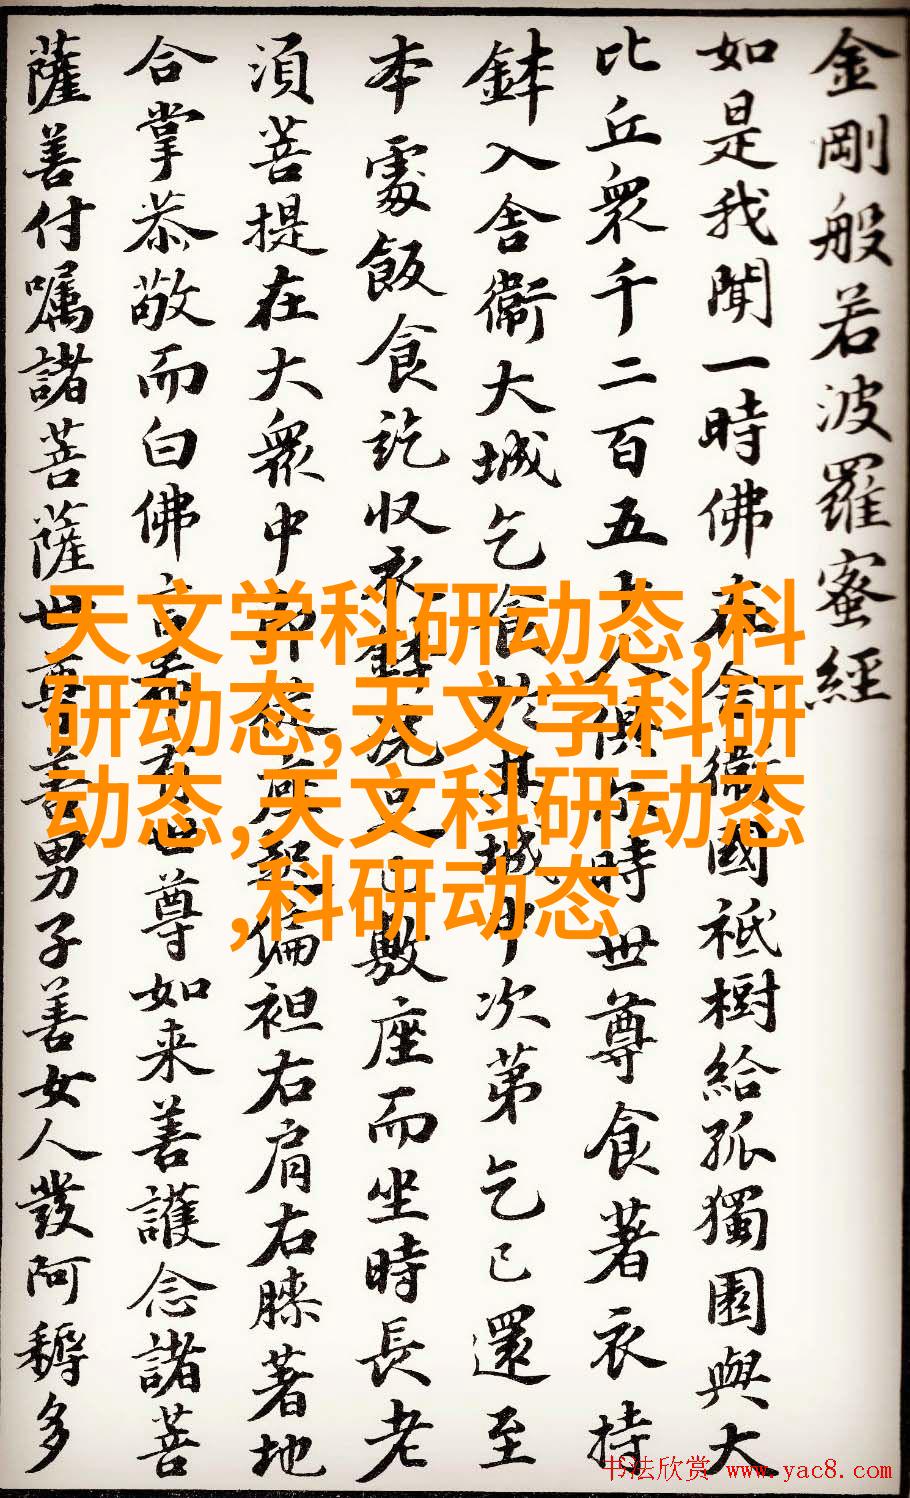 金剛般若波羅蜜經
如是我聞一時佛在舍衛國祇樹給孤獨園與大
比丘衆千二百五十人俱尒時世尊食著衣持
鉢入舍衛大城乞食於其城中次第乞已還至
本處飯食訖收衣鉢洗足已敷座而坐時長老
須菩提在大衆中即從座起偏袒右肩右膝著地
合掌恭敬而白佛言希有世尊如来善護念諸菩
薩善付嘱諸菩薩世尊善男子善女人發阿耨多
天文学科研动态,科
研动态,天文学科研
动态,天文科研动态
,科研动态
书法欣赏 www.yac8.com